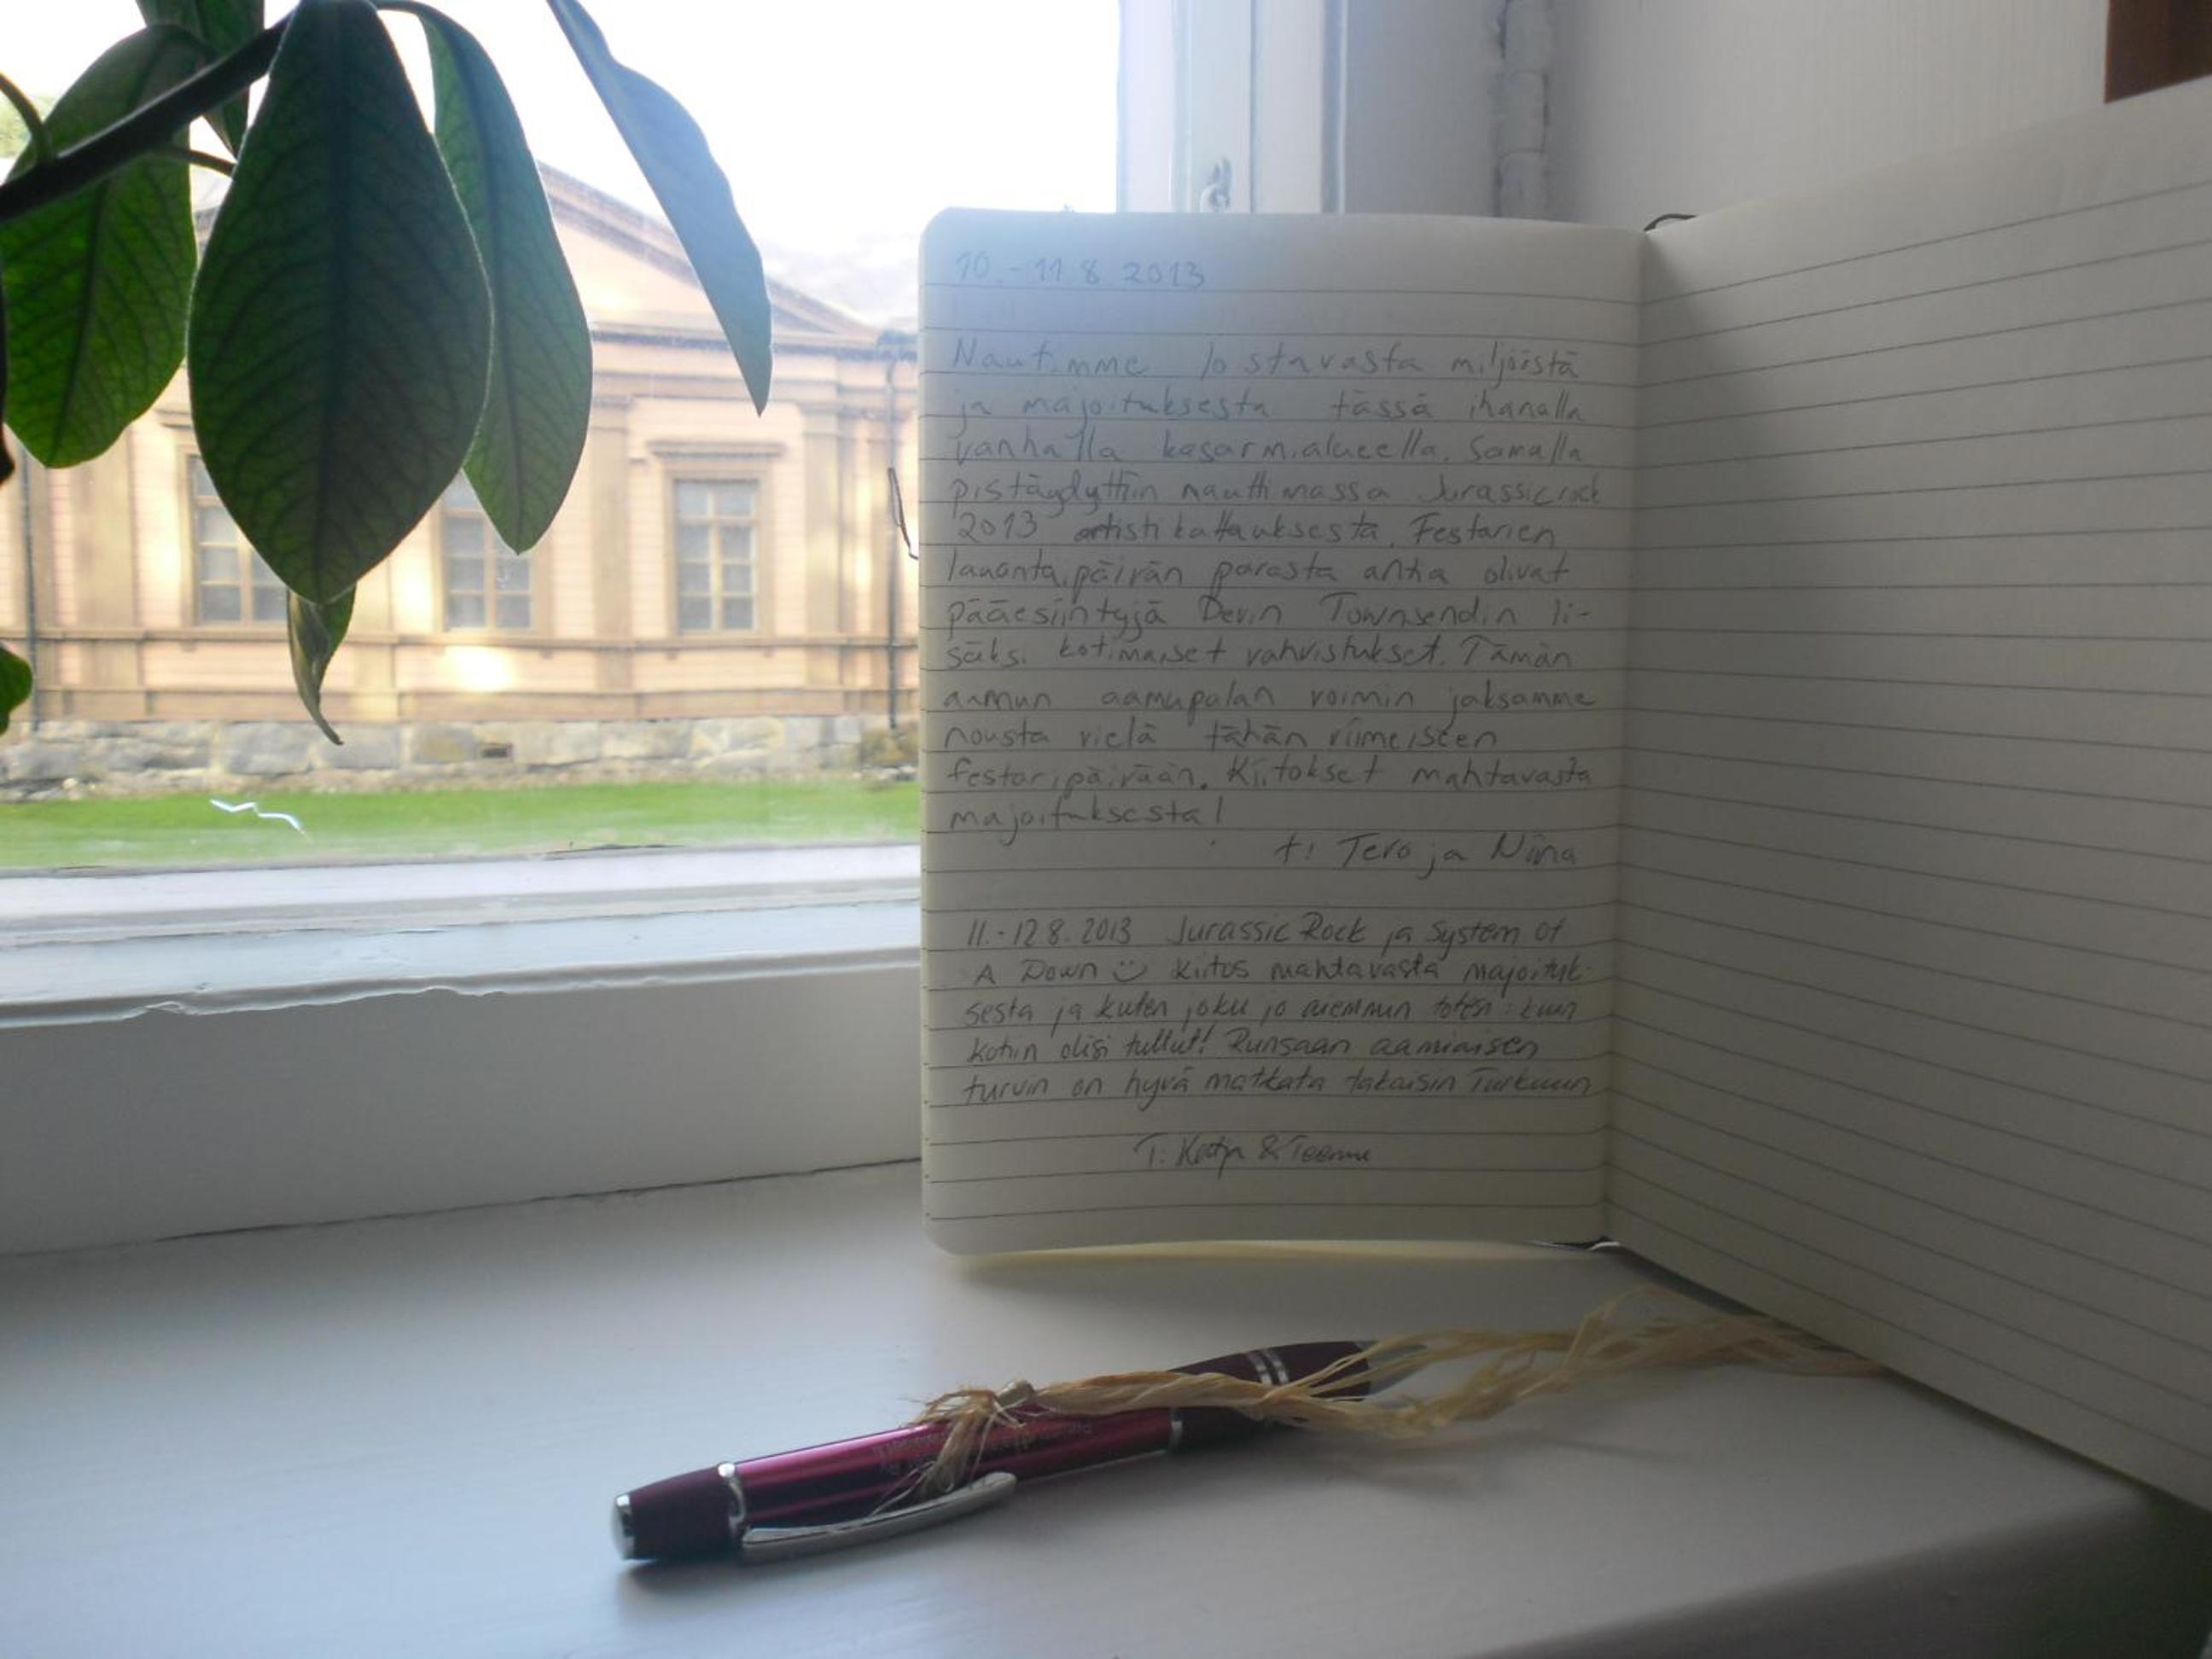 10.-11.8.2013
Nautimme loistavasta miljööstä
ja majoituksesta tässä ihanalla
vanhalla kasarmialueella. Samalla
pistäydyttiin nauttimassa Jurassicrock
2013 artistikattauksesta. Festarien
lauantaipäivän parasta antia olivat
pääesiintyjä Devin Townsendin li-
säksi kotimaiset vahvistukset. Tämän
aamun aamupalan voimin jaksamme
nousta vielä tähän viimeiseen
festaripäivään. Kiitokset mahtavasta
majoituksesta!
t: Tero ja Niina
11.-12.8.2013 Jurassic Rock ja System of
A Down Kiitos mahtavasta majoituk-
sesta ja kuten joku jo aiemmin totesi: kuin
kotiin olisi tullut! Runsaan aamiaisen
turvin on hyvä matkata takaisin Turkuun
T: Katja & Teemu